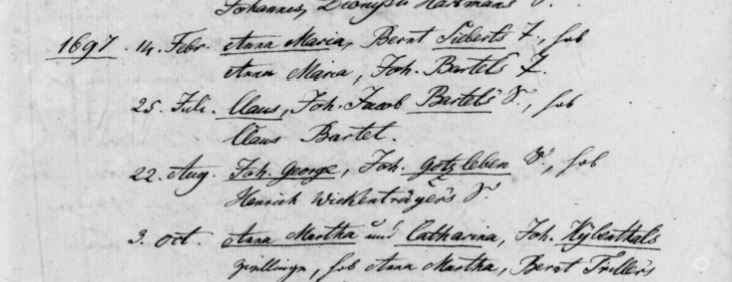 Johannes, Dionysii Hartmans S.
1697. 14. Febr. Anna Maria, Bernt Sieberts T., sub
Anna Maria, Joh. Bartels T.
25. Juli. Claus, Joh. Jacob Bartels S., sub
Claus Bartel.
22. Aug. Joh. George, Joh. Gotzleben S., sub
Henrich Wickenträgers S.
3. Oct. Anna Martha und Catharina, Joh. Hylenthals
Zwillinge, sub Anna Martha, Bernt Trillers